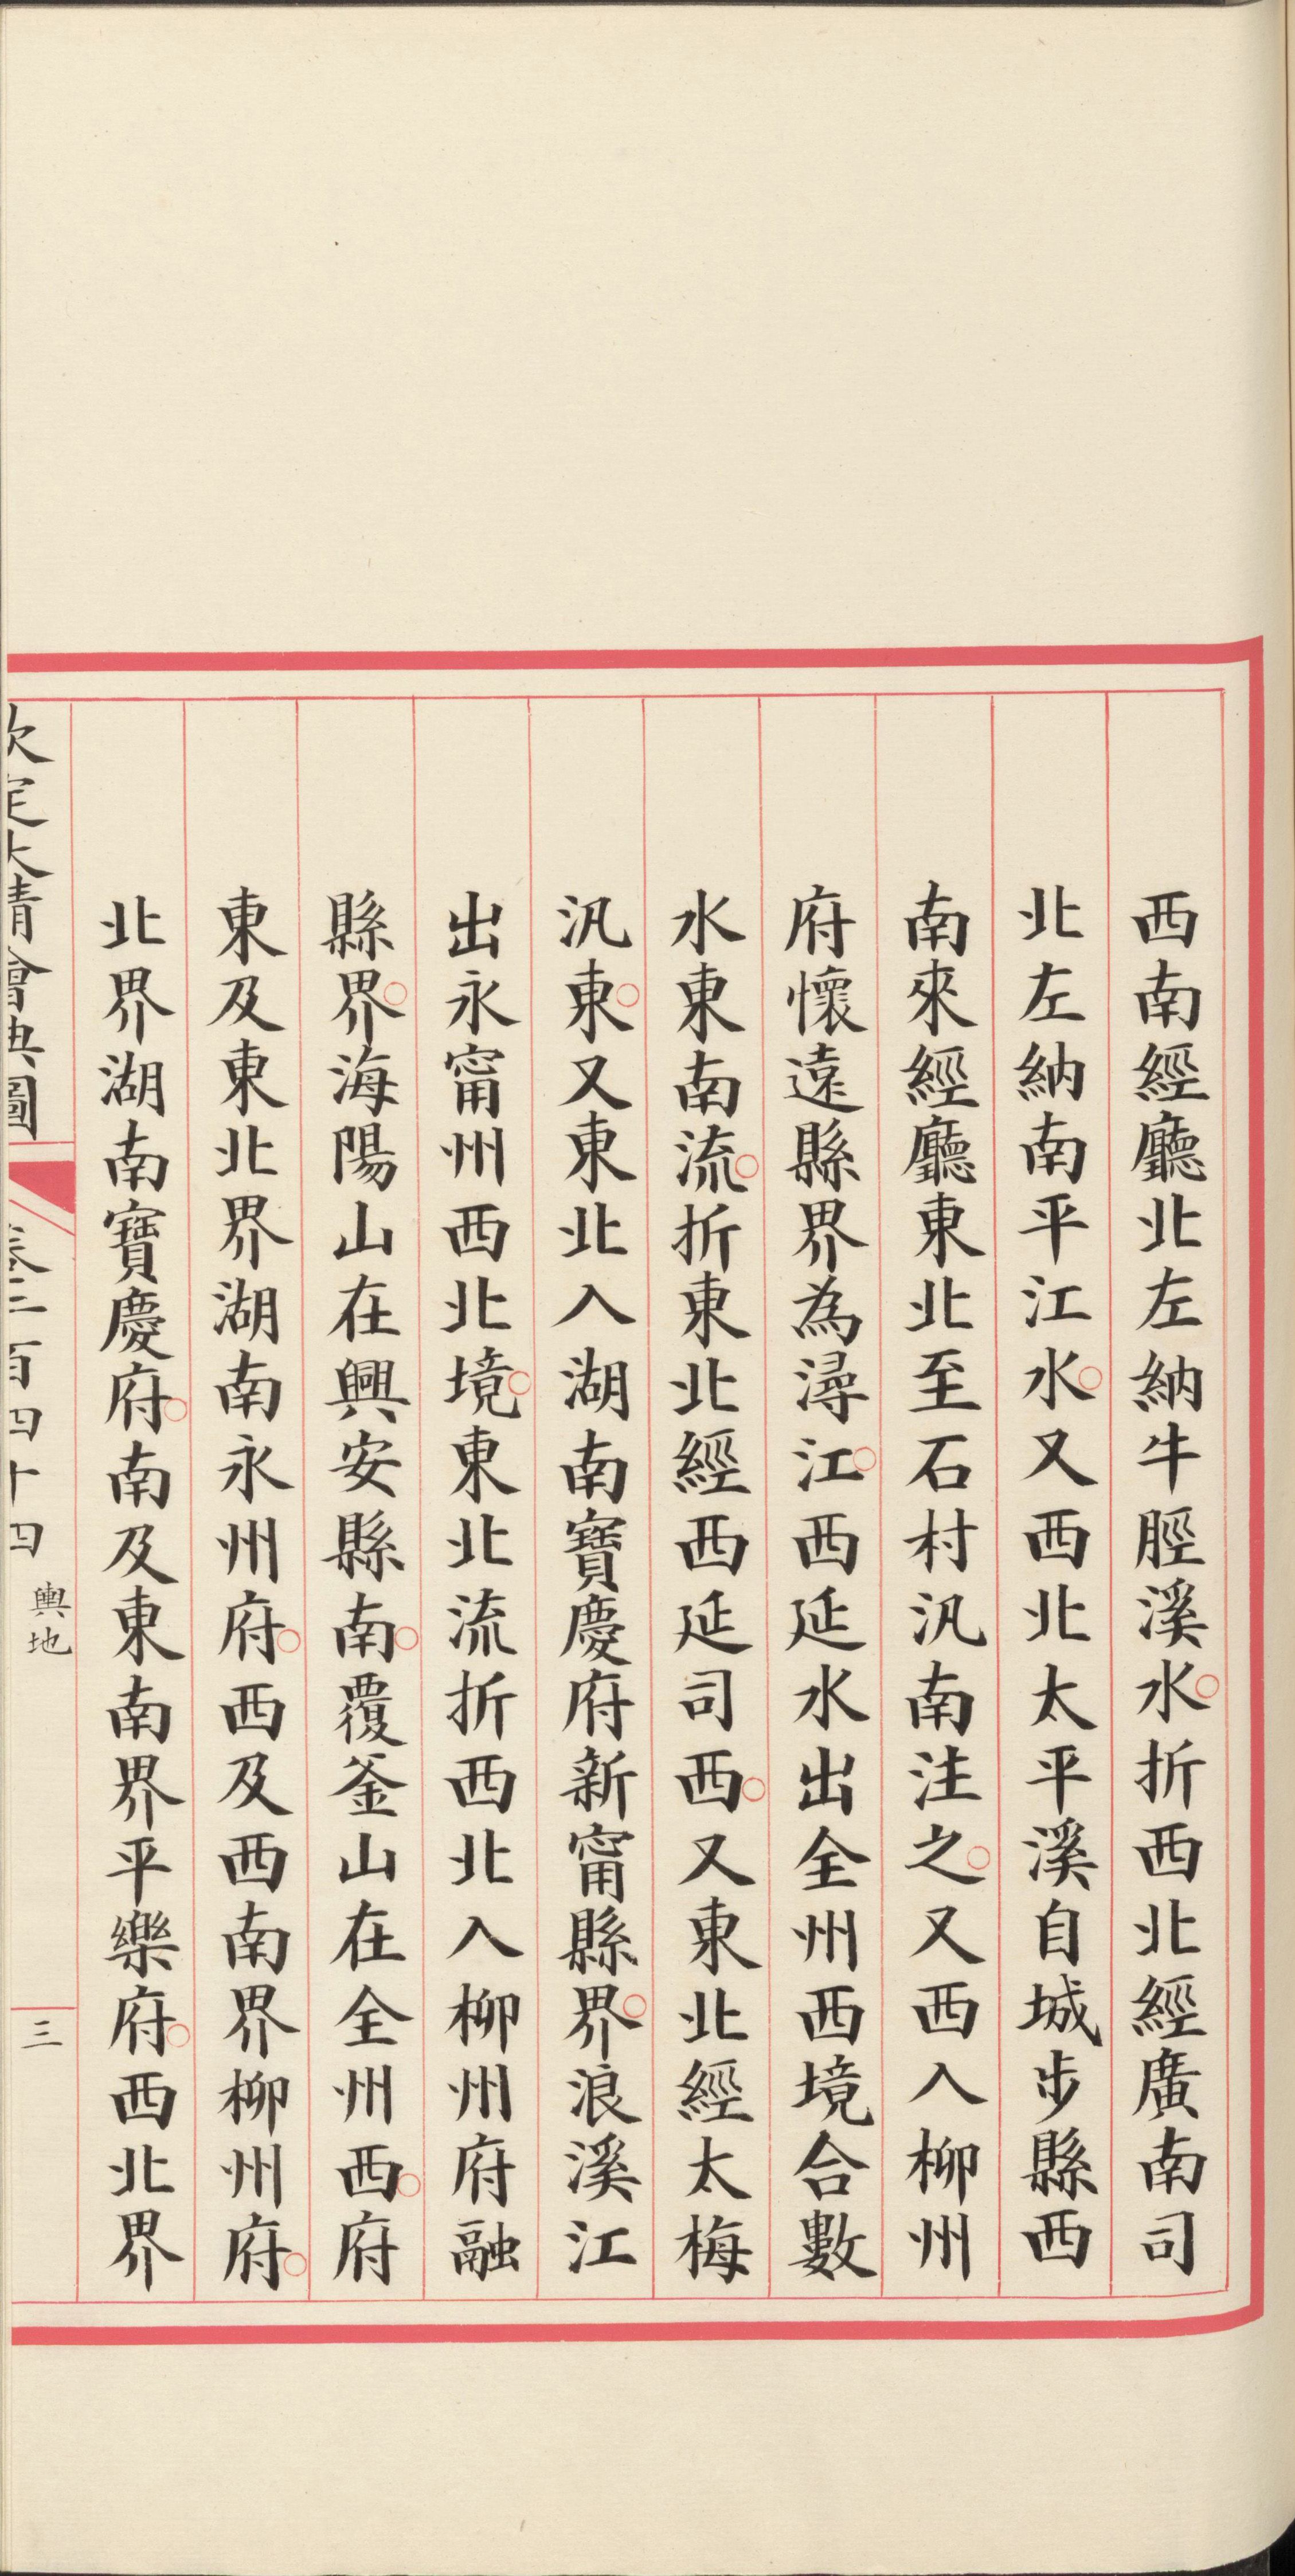 西南經廳北左納牛脛溪水。折西北經廣南司
北左納南平江水。又西北太平溪自城步縣西
南來經廳東北至石村汛南注之。又西入柳州
府懷遠縣界為潯江。西延水出全州西境合數
水東南流。折東北經西延司西。又東北經太梅
汛東。又東北入湖南寶慶府新甯縣界。浪溪江
出永甯州西北境。東北流折西北入柳州府融
縣界。海陽山在興安縣南。覆釜山在全州西。府
東及東北界湖南永州府。西及西南界柳州府。
北界湖南寶慶府。南及東南界平樂府。西北界
欽定大清會典圖 卷二百四十四 輿地 三